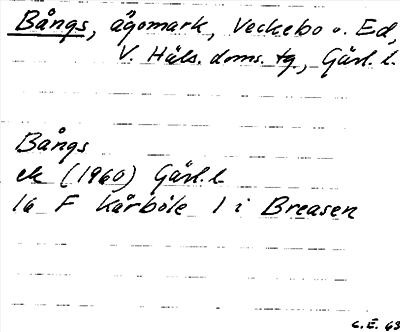 Bångs, ägomark, Veckebo o. Ed,
V. Häls. doms. tg, Gävl. l.
Bångs
ek (1960) Gävl. l.
16 F Kårböle 1 i Breåsen
C.E. 63